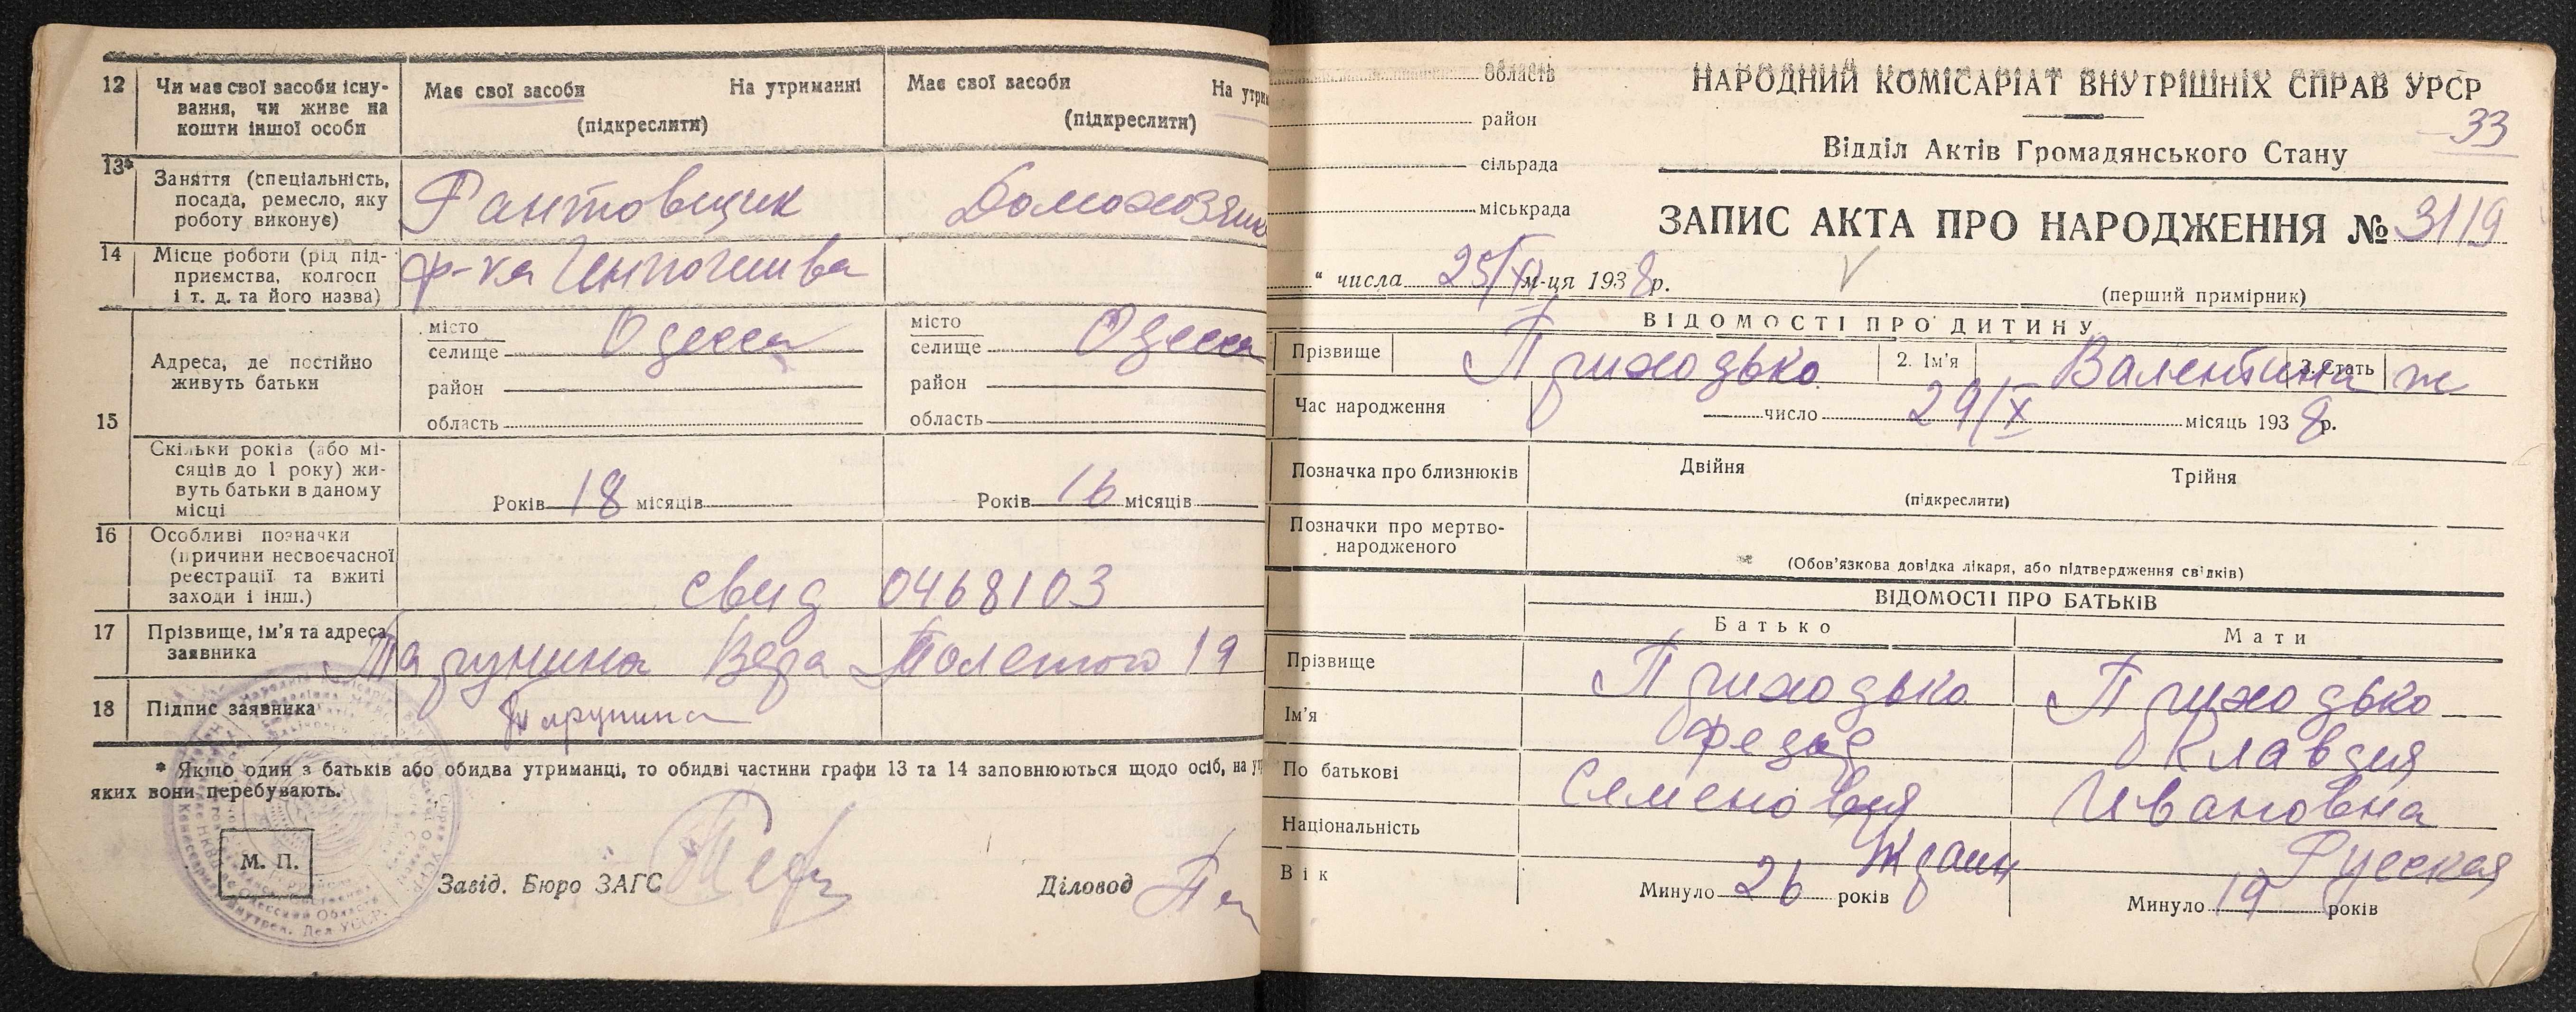 12 Чи має свої засоби існу-
вання, чи живе на
кошти іншої особи
Має свої засоби На утриманні
(підкреслити)
Має свої засоби На утри
(підкреслити)
13* Заняття (спеціальність,
посада, ремесло, яку
роботу виконує)
Рантовщик
Домохозяйк
14 Місце роботи (рід під-
приємства, колгосп
і т. д. та його назва)
ф-ка
15 Адреса, де постійно
живуть батьки
місто
селище Одесса
район
область
місто
селище Одесса
район
область
Скільки років (або мі-
сяців до 1 року) жи-
вуть батьки в даному
місці
Років 18 місяців
Років 16 місяців
16 Особливі позначки
(причини несвоєчасної
реєстрації та вжиті
заходи і інш.)
свид 0468103
17 Прізвище, ім'я та адреса
заявника
Тарунина Вера 19
18 Підпис заявника
Тарунина
* Якщо один з батьків або обидва утриманці, то обидві частини графи 13 та 14 заповнюються щодо осіб, на у
яких вони перебувають.
М. П.
Завід. Бюро ЗАГС
Діловод
Область
район
сільрада
міськрада
НАРОДНИЙ КОМІСАРІАТ ВНУТРІШНІХ СПРАВ УРСР
33
Відділ Актів Громадянського Стану
ЗАПИС АКТА ПРО НАРОДЖЕННЯ № 3119
" числа 25/XI м-ця 1938р.
(перший примірник)
ВІДОМОСТІ ПРО ДИТИНУ
Прізвище Приходько 2. Ім'я Валентина 3. Стать ж
Час народження число 29/X місяць 1938р.
Позначка про близнюків Двійня Трійня
(підкреслити)
Позначки про мертво-
народженого
(Обов'язкова довідка лікаря, або підтвердження свідків)
ВІДОМОСТІ ПРО БАТЬКІВ
Батько Мати
Прізвище Приходько Приходько
Ім'я Федор Клавдия
По батькові Семенович Ивановна
Національність Украин Русская
Вік Минуло 26 років Минуло 19 років